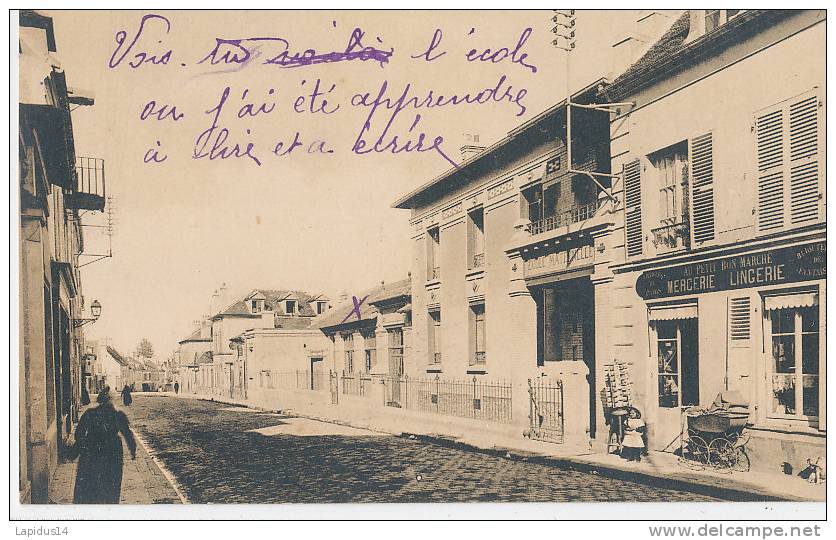 Vois-tu voilà l'école
ou j'ai été apprendre
à lire et a écrire
ÉCOLE MATERNELLE
AU PETIT BON MARCHÉ
MERCERIE LINGERIE
x
Lapidus14
http://www.delcampe.net